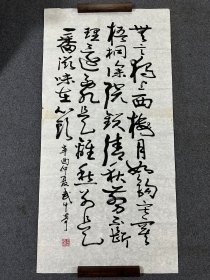 無言獨上西樓月如鈎寂寞
梧桐深院鎖清秋剪不斷
理還亂是離愁別是
一番滋味在心頭
辛酉仲夏武中奇